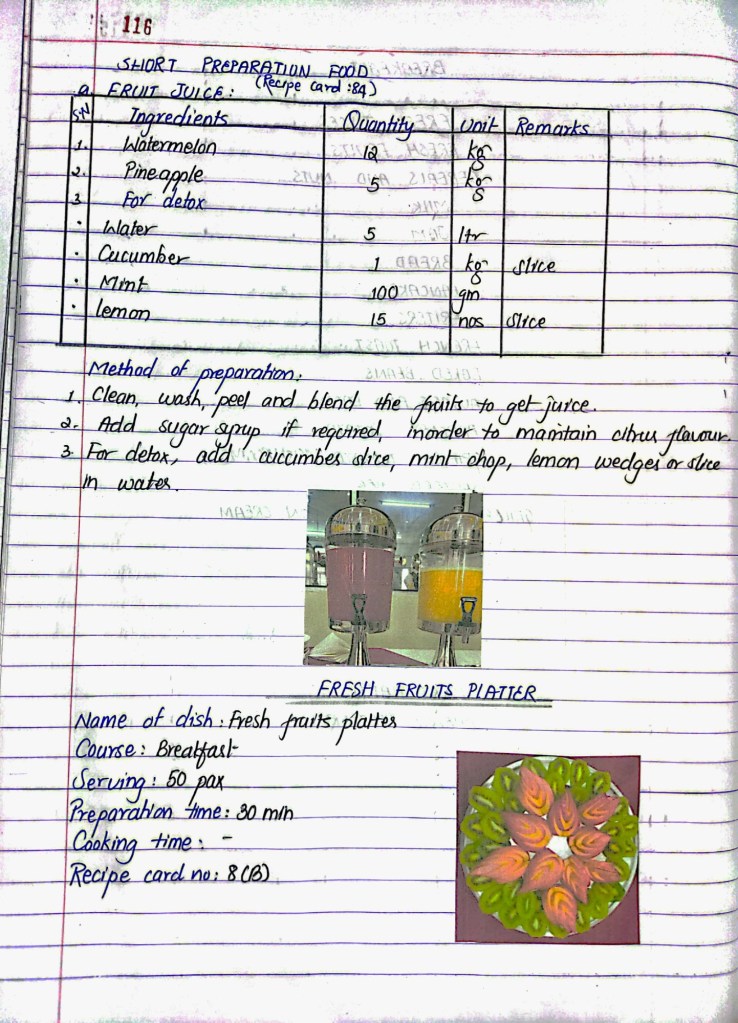 116
SHORT PREPARATION FOOD
a. FRUIT JUICE: (Recipe card :8A)
S.N Ingredients Quantity Unit Remarks
1. Watermelon 12 kg
2. Pineapple 5 kg
3 For detox
• Water 5 ltr
• Cucumber 1 kg slice
• Mint 100 gm
• lemon 15 nos slice
Method of preparation:
1. Clean, wash, peel and blend the fruits to get juice.
2. Add sugar syrup if required, inorder to maintain citrus flavour.
3. For detox, add cucumber slice, mint chop, lemon wedges or slice
in water.
FRESH FRUITS PLATTER
Name of dish: Fresh fruits platter
Course: Breakfast
Serving: 50 pax
Preparation time: 30 min
Cooking time: -
Recipe card no: 8(B)